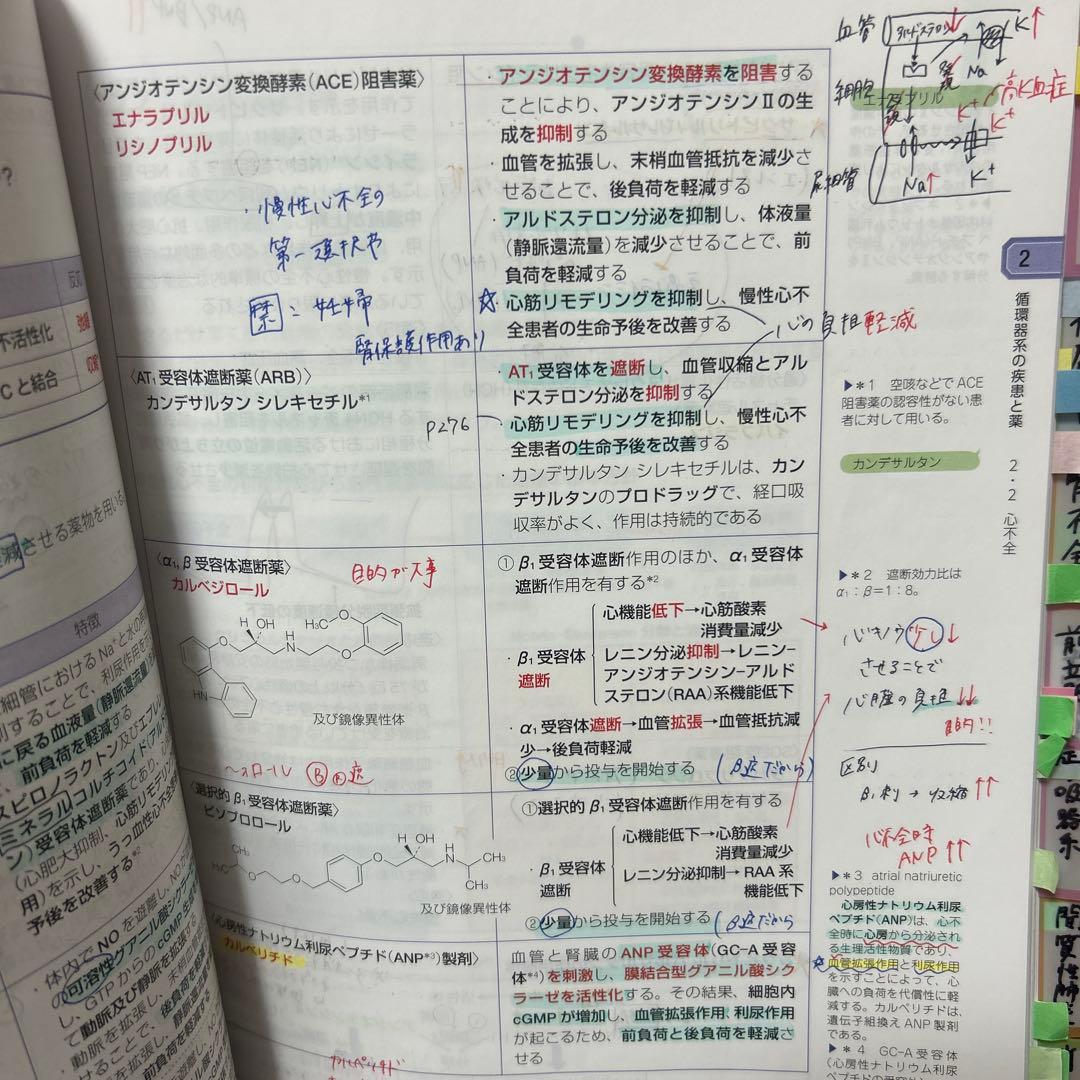 〈アンジオテンシン変換酵素(ACE)阻害薬〉
エナラプリル
リシノプリル
・慢性心不全の
第一選択や
禁：妊婦
腎保護作用あり
・アンジオテンシン変換酵素を阻害する
ことにより、アンジオテンシンⅡの生
成を抑制する
・血管を拡張し、末梢血管抵抗を減少さ
せることで、後負荷を軽減する
・アルドステロン分泌を抑制し、体液量
(静脈還流量)を減少させることで、前
負荷を軽減する
☆心筋リモデリングを抑制し、慢性心不
全患者の生命予後を改善する
心の負担軽減
〈AT₁受容体遮断薬(ARB)〉
カンデサルタン シレキセチル*1
P276
・AT₁受容体を遮断し、血管収縮とアル
ドステロン分泌を抑制する
・心筋リモデリングを抑制し、慢性心不
全患者の生命予後を改善する
・カンデサルタン シレキセチルは、カン
デサルタンのプロドラッグで、経口吸
収率がよく、作用は持続的である
〈α₁, β受容体遮断薬〉
カルベジロール
目的が大事
H OH
H₃C
O
H
N
O
HN
及び鏡像異性体
① β₁受容体遮断作用のほか、α₁受容体
遮断作用を有する*2
・β₁受容体
遮断
心機能低下→心筋酸素
消費量減少
レニン分泌抑制→レニン–
アンジオテンシン–アルド
ステロン(RAA)系機能低下
・α₁受容体遮断→血管拡張→血管抵抗減
少→後負荷軽減
②少量から投与を開始する
(β遮だから)
〜ロール
〈選択的β₁受容体遮断薬〉
ビソプロロール
H OH
CH₃
CH₃
及び鏡像異性体
①選択的β₁受容体遮断作用を有する
・β₁受容体
遮断
心機能低下→心筋酸素
消費量減少
レニン分泌抑制→RAA系
機能低下
②少量から投与を開始する
(β遮だから
〈心房性ナトリウム利尿ペプチド(ANP*3)製剤〉
カルペリチド
血管と腎臓のANP受容体(GC-A受容
体*4)を刺激し、膜結合型グアニル酸シク
ラーゼを活性化する。その結果、細胞内
cGMPが増加し、血管拡張作用、利尿作用
が起こるため、前負荷と後負荷を軽減さ
せる
カルペリチド
血管
アルドステロン↓
K↑
Na
細胞
エナラプリル
K⁺
高K血症
尿細管
Na↑
K⁺
2
循環器系の疾患と薬
2・2 心不全
▶*1 空咳などでACE
阻害薬の認容性がない患
者に対して用いる。
カンデサルタン
▶*2 遮断効力比は
α₁：β＝1：8。
心キノウ↓
させることで
心臓の負担↓↓
目的!!
区別
β₁刺→収縮↑↑
心不全時
ANP↑↑
▶*3 atrial natriuretic
polypeptide
心房性ナトリウム利尿
ペプチド(ANP)は、心不
全時に心房から分泌され
る生理活性物質であり、
☆血管拡張作用と利尿作用
を示すことによって、心
臓への負荷を代償性に軽
減する。カルペリチドは、
遺伝子組換えANP製剤
である。
▶*4 GC-A受容体
(心房性ナトリウム利尿
反応
不活性化
Cと結合
減させる薬物を用い
特徴
細管におけるNa⁺と水の再
前負荷を軽減する
ミネラルコルチコイド
ン)受容体遮断薬であり、
(心肥大抑制、心筋リモデリ
用)を示し、うっ血性心不全
予後を改善する*2
・体内でNOを遊離し、
可溶性グアニル酸シク
GTPからのcGMP